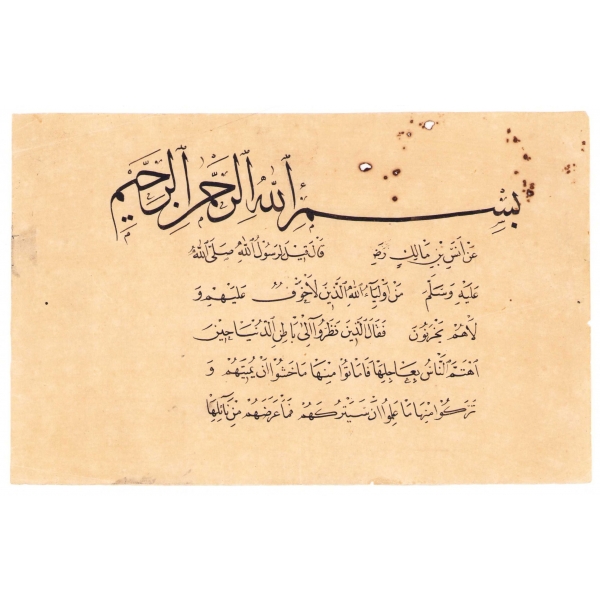 بِسْمِ ٱللّٰهِ ٱلرَّحْمٰنِ ٱلرَّحِيْمِ
عَنْ اَنَسِ بْنِ مَالِكٍ رَضِ قَالَ قِيْلَ لِرَسُوْلِ ٱللّٰهِ صَلَّى ٱللّٰهُ
عَلَيْهِ وَسَلَّمَ مَنْ اَوْلِيَآءُ ٱللّٰهِ ٱلَّذِيْنَ لَاخَوْفٌ عَلَيْهِمْ وَ
لَاهُمْ يَحْزَنُوْنَ فَقَالَ ٱلَّذِيْنَ نَظَرُوْا اِلٰى بَاطِنِ ٱلدُّنْيَا حِيْنَ
ٱهْتَمَّ ٱلنَّاسُ بِعَاجِلِهَا فَاَمَاتُوْا مِنْهَا مَا خَشُوْا اَنْ يُمِيْتَهُمْ وَ
تَرَكُوْا مِنْهَا مَا عَلِمُوْا اَنْ سَيَتْرُكَهُمْ فَمَا عَرَضَهُمْ مِنْ نَآئِلِهَا